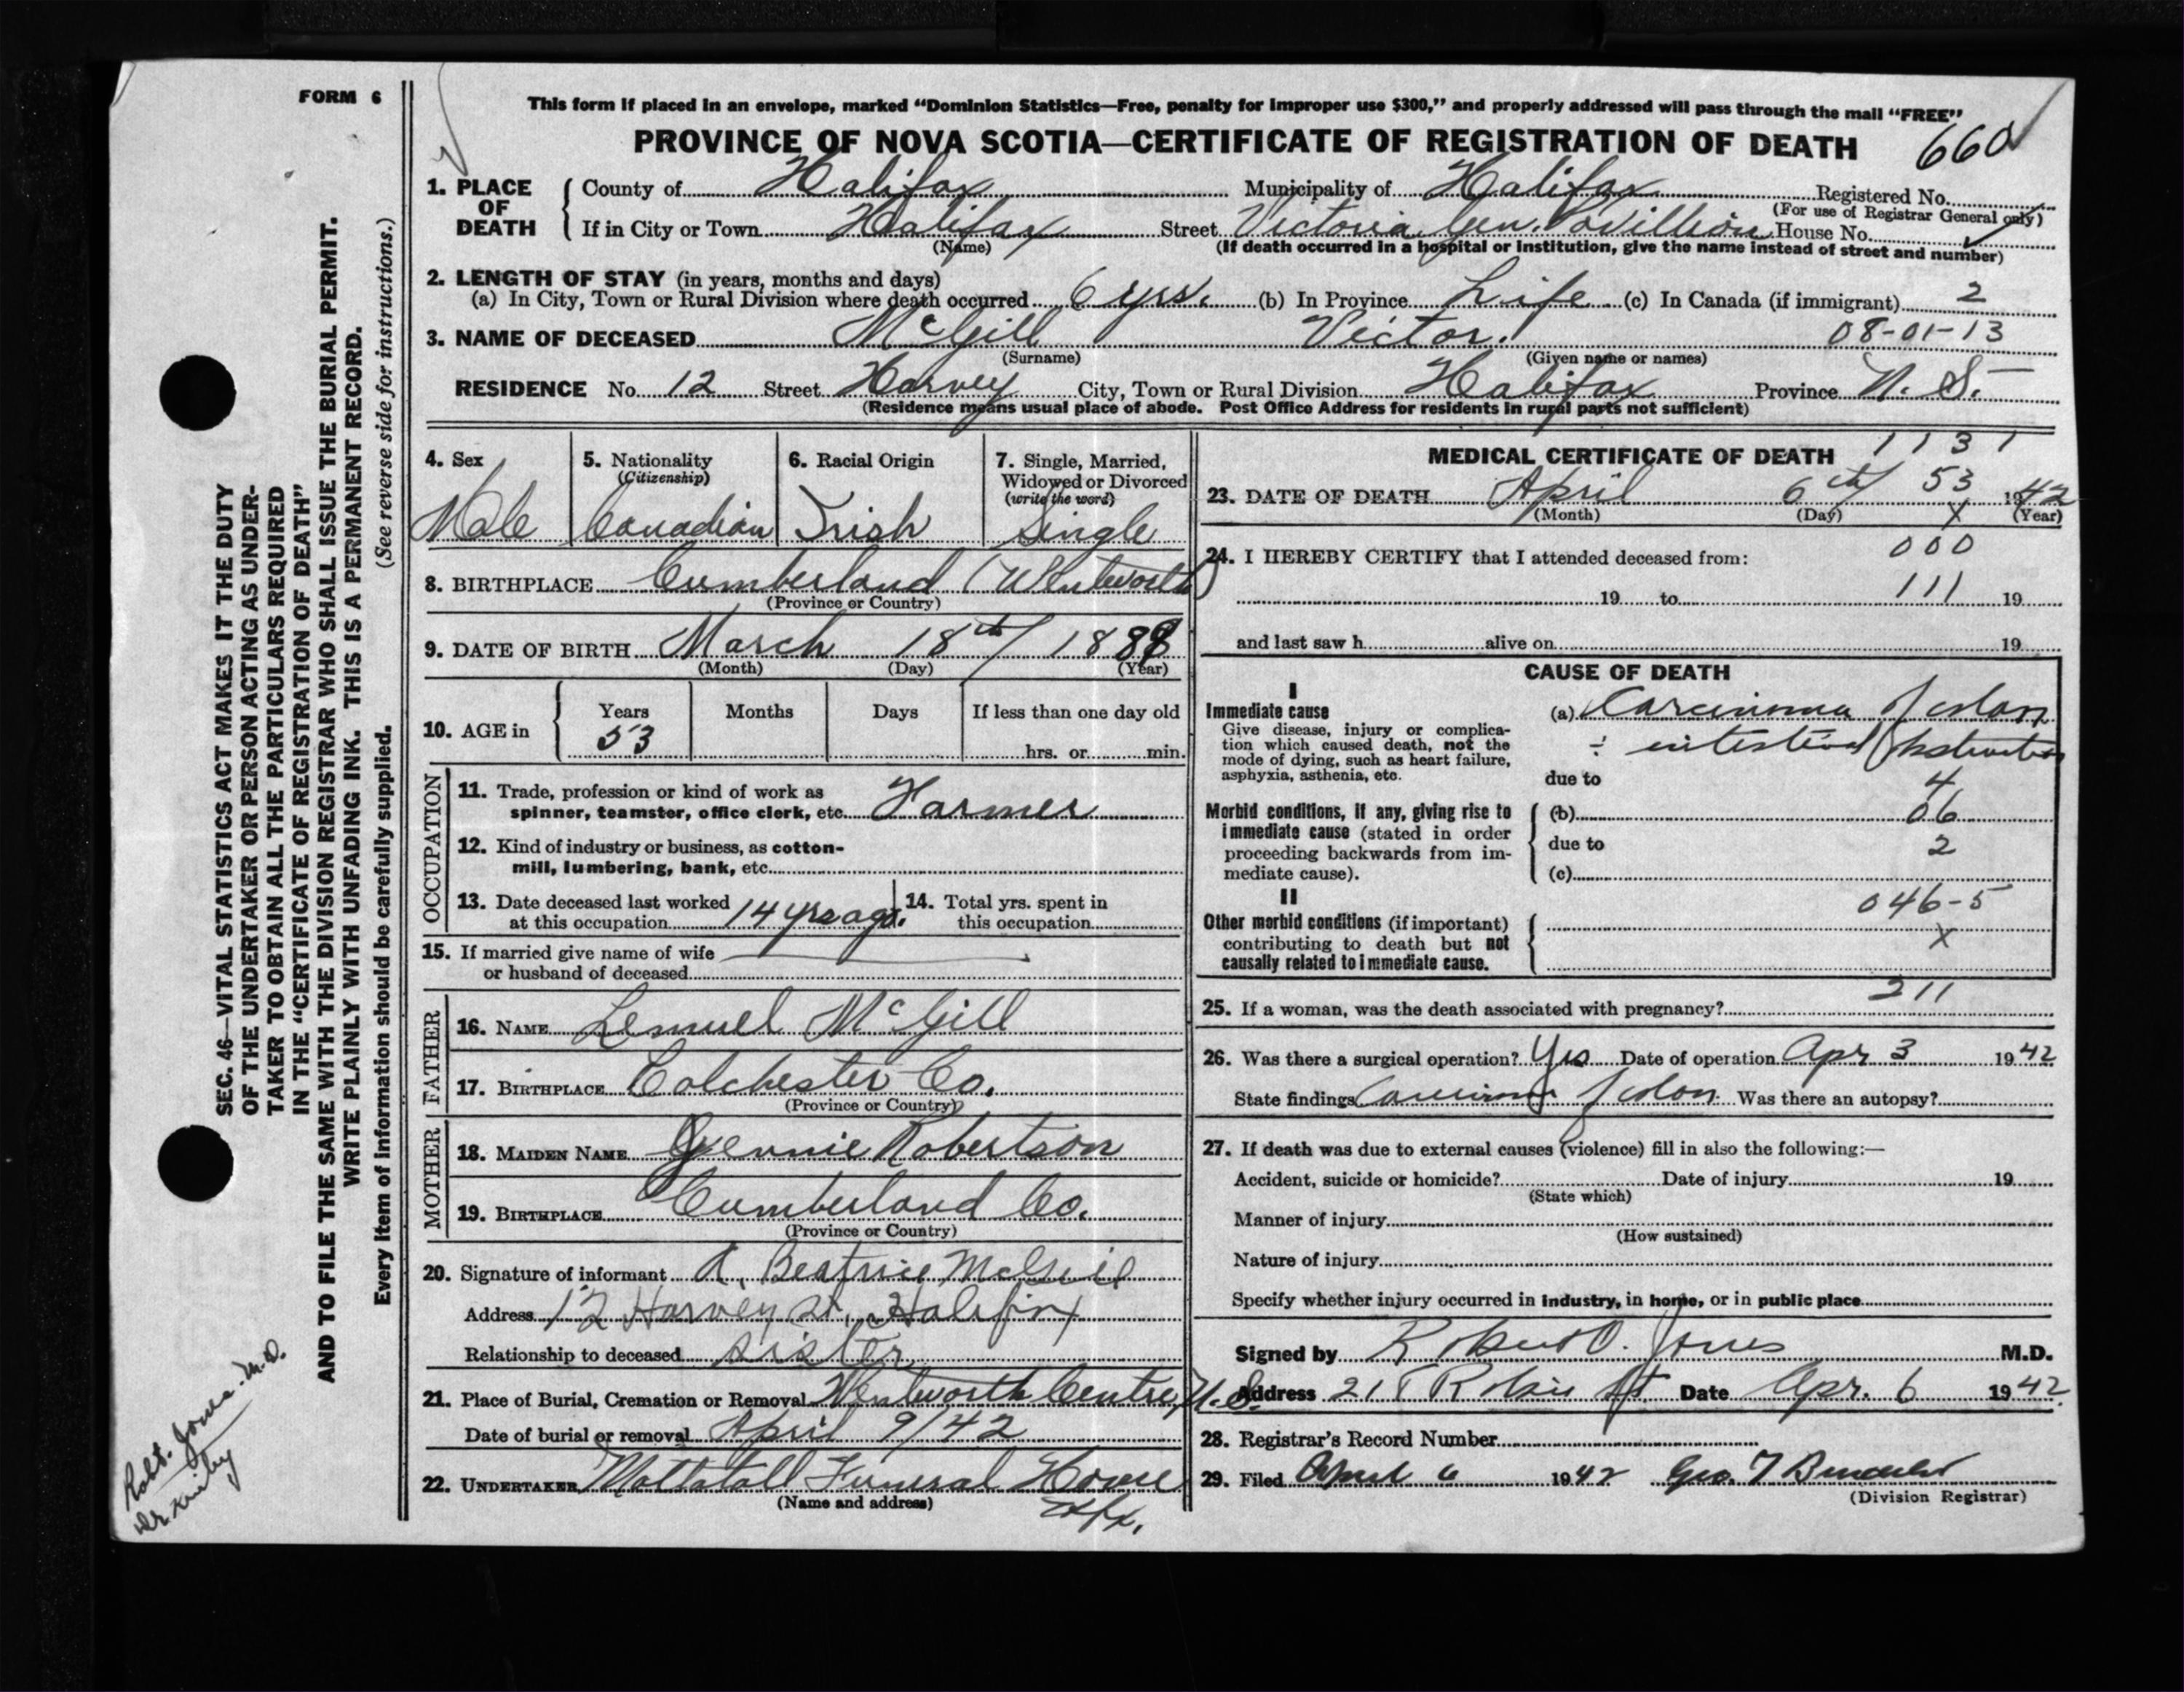 FORM 6
This form if placed in an envelope, marked “Dominion Statistics—Free, penalty for improper use $300,” and properly addressed will pass through the mail “FREE”
PROVINCE OF NOVA SCOTIA—CERTIFICATE OF REGISTRATION OF DEATH 660
1. PLACE OF DEATH
County of Halifax Municipality of Halifax Registered No.
(For use of Registrar General only)
If in City or Town Halifax Street Victoria Gen. Pavillion House No.
(Name) (If death occurred in a hospital or institution, give the name instead of street and number)
2. LENGTH OF STAY (in years, months and days)
(a) In City, Town or Rural Division where death occurred 6 yrs. (b) In Province Life (c) In Canada (if immigrant) 2
3. NAME OF DECEASED McGill Victor. 08-01-13
(Surname) (Given name or names)
RESIDENCE No. 12 Street Harvey City, Town or Rural Division Halifax Province N. S.
(Residence means usual place of abode. Post Office Address for residents in rural parts not sufficient)
4. Sex
Male
5. Nationality
(Citizenship)
Canadian
6. Racial Origin
Irish
7. Single, Married,
Widowed or Divorced
(write the word)
Single
8. BIRTHPLACE Cumberland (Wentworth)
(Province or Country)
9. DATE OF BIRTH March 18th 188
(Month) (Day) (Year)
10. AGE in
Years Months Days If less than one day old
53 hrs. or min.
OCCUPATION
11. Trade, profession or kind of work as
spinner, teamster, office clerk, etc. Farmer
12. Kind of industry or business, as cotton-
mill, lumbering, bank, etc.
13. Date deceased last worked
at this occupation 14 yrs ago.
14. Total yrs. spent in
this occupation
15. If married give name of wife
or husband of deceased
FATHER
16. NAME Lemuel McGill
17. BIRTHPLACE Colchester Co.
(Province or Country)
MOTHER
18. MAIDEN NAME Jennie Robertson
19. BIRTHPLACE Cumberland Co.
(Province or Country)
20. Signature of informant A. Beatrice McGill
Address 12 Harvey St., Halifax
Relationship to deceased sister
21. Place of Burial, Cremation or Removal Wentworth Centre, N.S.
Date of burial or removal April 9/42
22. UNDERTAKER Mattatall Funeral House
(Name and address) Hfx.
MEDICAL CERTIFICATE OF DEATH 1131
23. DATE OF DEATH April 6th 53 1942
(Month) (Day) X (Year)
24. I HEREBY CERTIFY that I attended deceased from: 000
19 to 111 19
and last saw h alive on 19
CAUSE OF DEATH
I
Immediate cause
Give disease, injury or complica-
tion which caused death, not the
mode of dying, such as heart failure,
asphyxia, asthenia, etc.
(a) Carcinoma of colon
÷ intestinal obstruction
due to 4
Morbid conditions, if any, giving rise to
immediate cause (stated in order
proceeding backwards from im-
mediate cause).
(b) 06
due to 2
(c)
II
Other morbid conditions (if important)
contributing to death but not
causally related to immediate cause.
046-5
X
25. If a woman, was the death associated with pregnancy? 211
26. Was there a surgical operation? Yes Date of operation Apr 3 1942
State findings Carcinoma of colon. Was there an autopsy?
27. If death was due to external causes (violence) fill in also the following:—
Accident, suicide or homicide? Date of injury 19
(State which)
Manner of injury
(How sustained)
Nature of injury
Specify whether injury occurred in industry, in home, or in public place
Signed by Robert O. Jones M.D.
Address 218 Robie St Date Apr. 6 1942
28. Registrar’s Record Number
29. Filed April 6 1942 Geo. T
(Division Registrar)
SEC. 46—VITAL STATISTICS ACT MAKES IT THE DUTY
OF THE UNDERTAKER OR PERSON ACTING AS UNDER-
TAKER TO OBTAIN ALL THE PARTICULARS REQUIRED
IN THE “CERTIFICATE OF REGISTRATION OF DEATH”
AND TO FILE THE SAME WITH THE DIVISION REGISTRAR WHO SHALL ISSUE THE BURIAL PERMIT.
WRITE PLAINLY WITH UNFADING INK. THIS IS A PERMANENT RECORD.
Every item of information should be carefully supplied. (See reverse side for instructions.)
Robt. Jones M.D.
Dr. Kirby